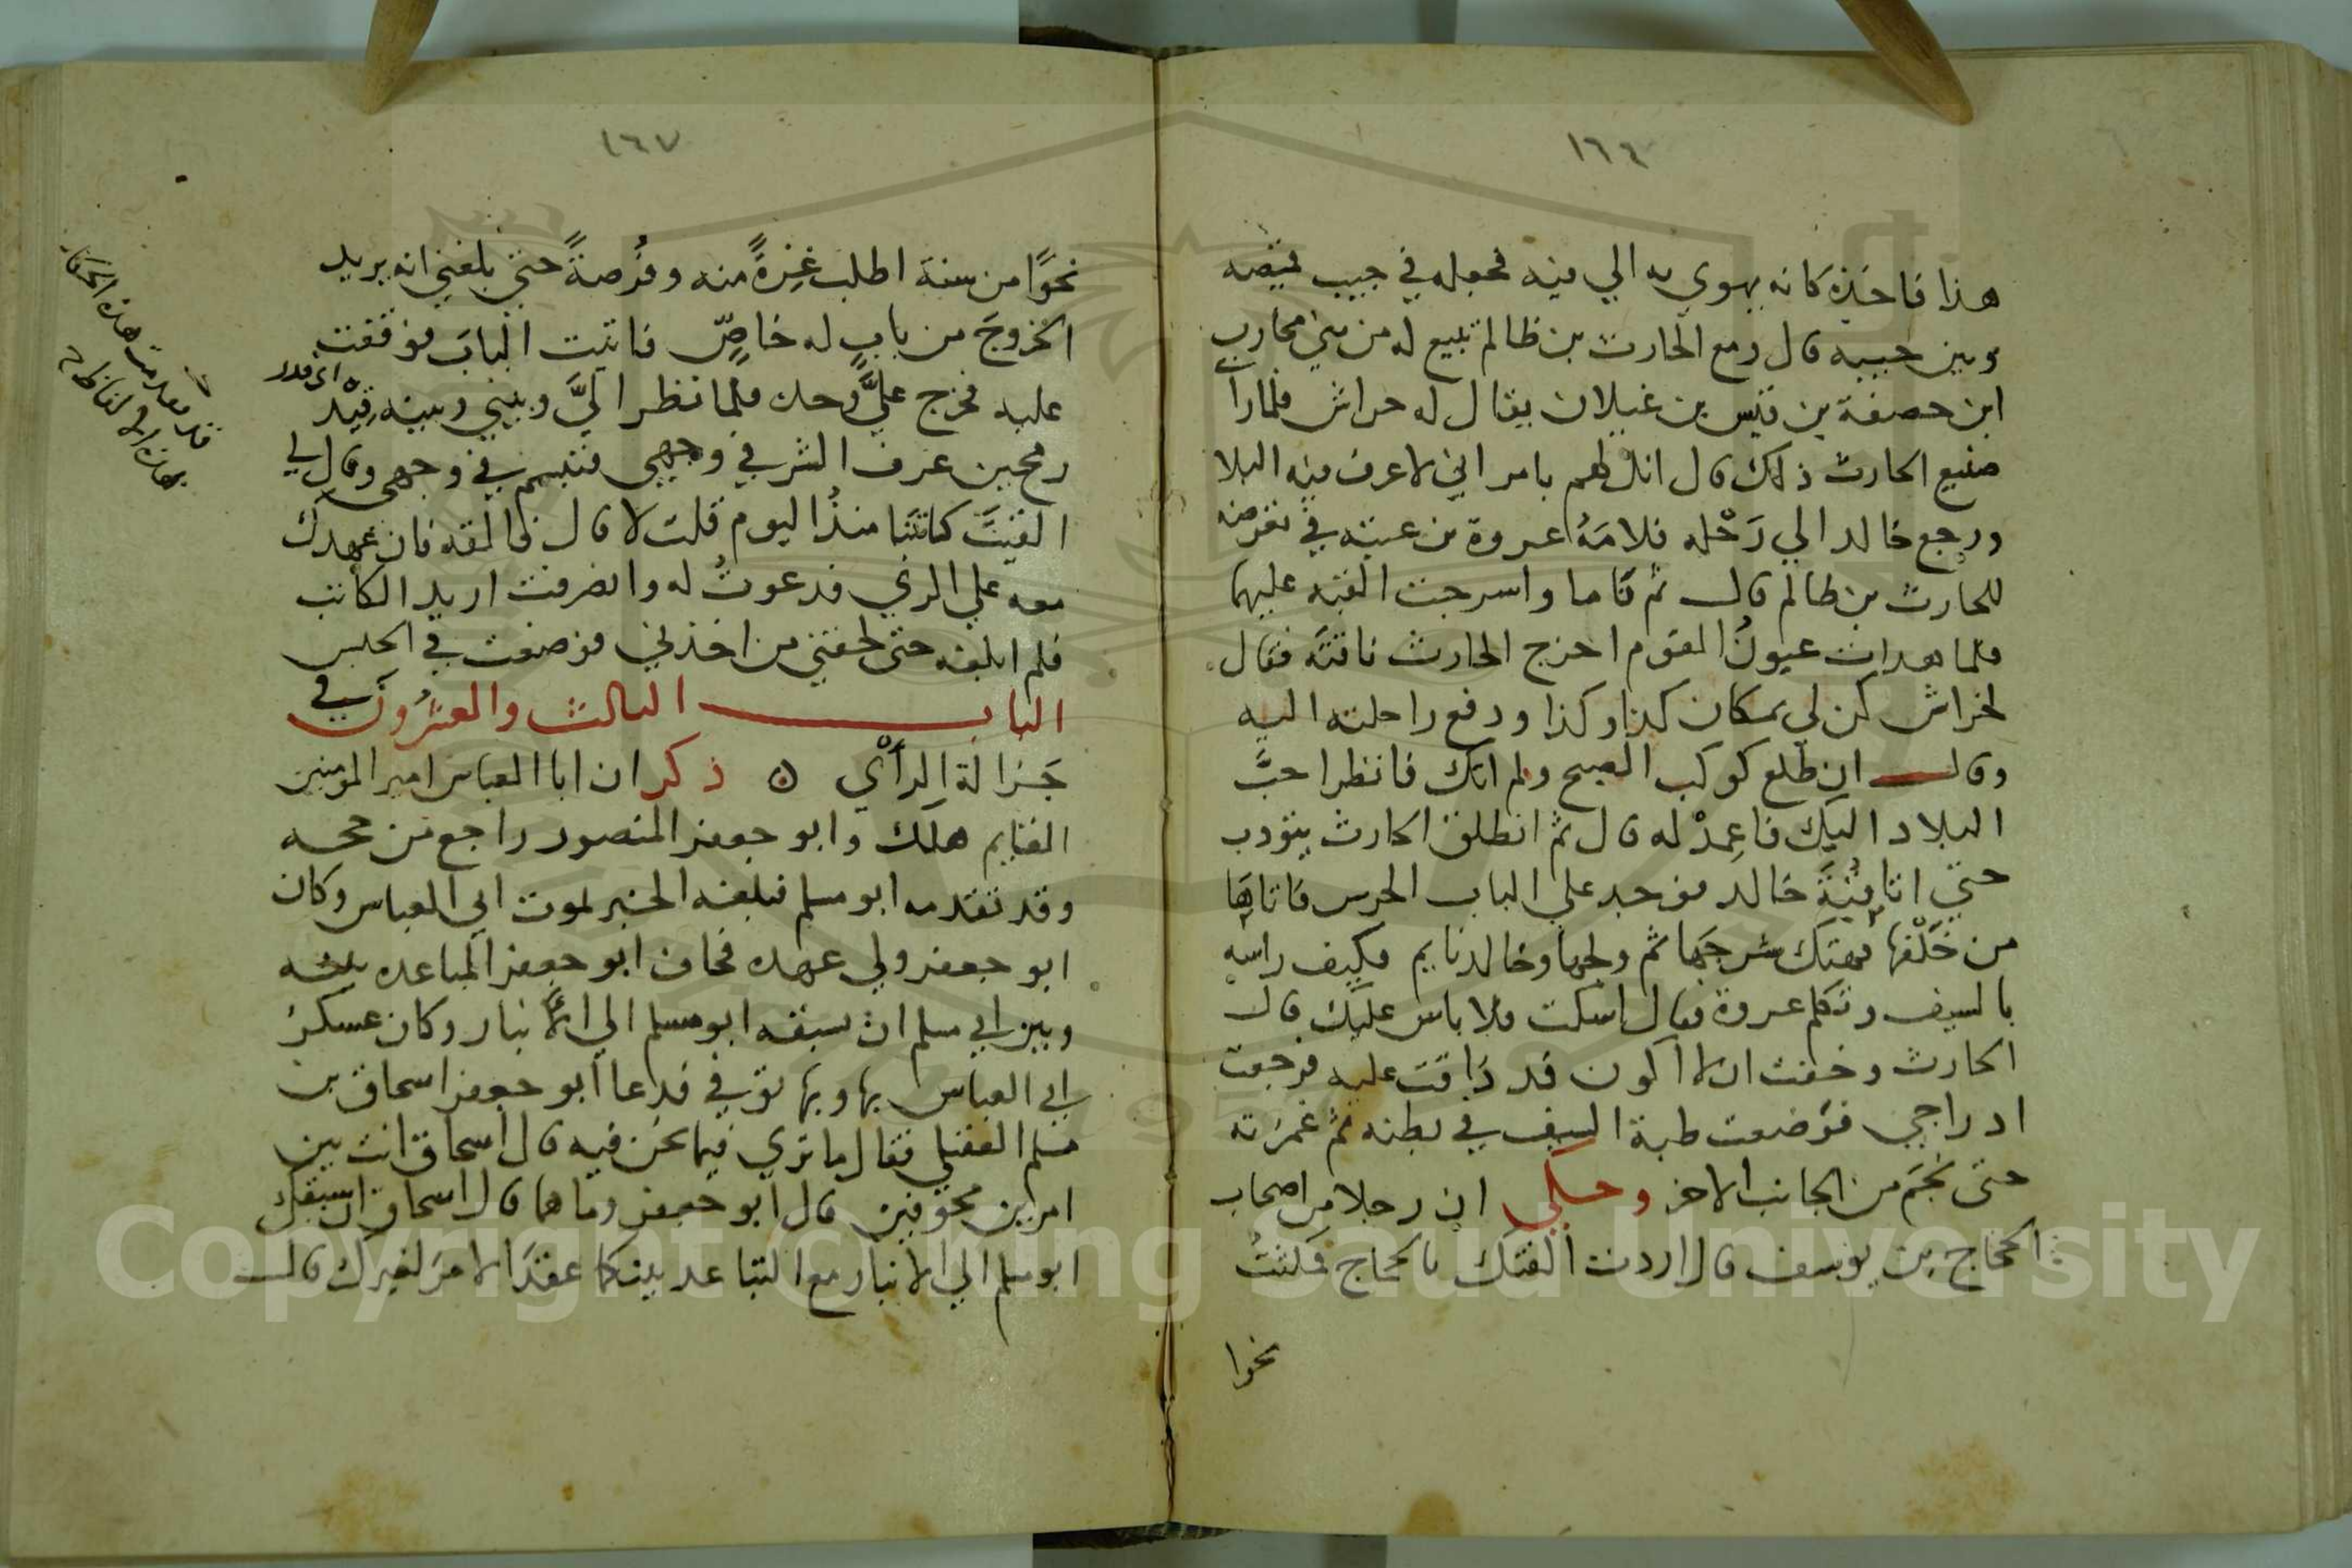 ١٦٤
هذا فاخذه كانه يهوي به الي فيه فجعله في جيب قميصه
وبين جيبه قال ومع الحارث بن ظالم تبيع له من بني محارب
ابن حصفة بن قيس بن غيلان يقال له حراش فلما رآ
صنيع الحارث ذلك قال انك لهم بامر اني لاعرف فيه البلا
ورجع خالد الي رَحْله فلامَهُ عروة بن عتبه في تعرضه
للحارث بن ظالم قال ثم قاما واسرجت القبه عليهما
فلما هدات عيونُ القوم اخرج الحارث ناقتَه فقال
لخراش كن لي بمكان كذا وكذا ودفع راحلته اليه
وقال ان طلع كوكب الصبح ولم اتك فانظر احبَّ
البلاد اليك فاعمدْ له قال ثم انطلق الحارث يتودب
حتي اتا قبَّةَ خالد فوجد علي الباب الحرس فاتاها
من خَلْفها فهتك شرجَها ثم ولجها وخالد نايم فكيف راسه
بالسيف وتكلم عروة فقال اسكت فلا باس عليك قال
الحارث وخفت ان لا اكون قد ذافت عليه فرجعت
ادراجي فوضعت طبة السيف في بطنه ثم غمزته
حتى نجَم من الجانب الاخر وحكي ان رجلا من اصحاب
الحجاج بن يوسف قال اردت الفتك بالحجاج فلبثتُ
نحوا
١٦٧
نحوًا من سنة اطلب غِرةً منه وفُرصةً حتي بلغني انه يريد
الخروجَ من باب له خاصٍّ فاتيت البابَ فوقفت
عليه فخرج عليَّ وحده فلما نظر اليَّ وبيني وبينه قِيْد
اي قدر
رمحين عرف الشر في وجهي فتبسم في وجهي وقال لي
القيتَ كاتبَنا منذُ اليوم قلت لا قال فالقه فان عهدك
معه علي الري فدعوتُ له وانصرفت اريد الكاتب
فلم ابلغه حتى لحقني من اخذني فوضعت في الحبس
الباب الثالث والعشرون في
جَزالة الرأْي ٥ ذكر ان ابا العباس امير المومنين
القايم هلك وابو جعفر المنصور راجع من حجه
وقد تقدمه ابو مسلم فبلغه الخبر لموت ابي العباس وكان
ابو جعفر ولي عهده فخاف ابو جعفر المباعده بينه
وبين ابي مسلم ان سبقه ابو مسلم الي الانبار وكان عسكر
ابي العباس بها وبها توفي فدعا ابو جعفر اسحاق بن
مسلم العقيلي فقال ما تري فيما نحن فيه قال اسحاق انت بين
امرين مخوفين قال ابو جعفر وما هما قال اسحاق ان سبقك
ابو مسلم الي الانبار مع التباعد بينكما عقدَ الامرَ لغيرك قال